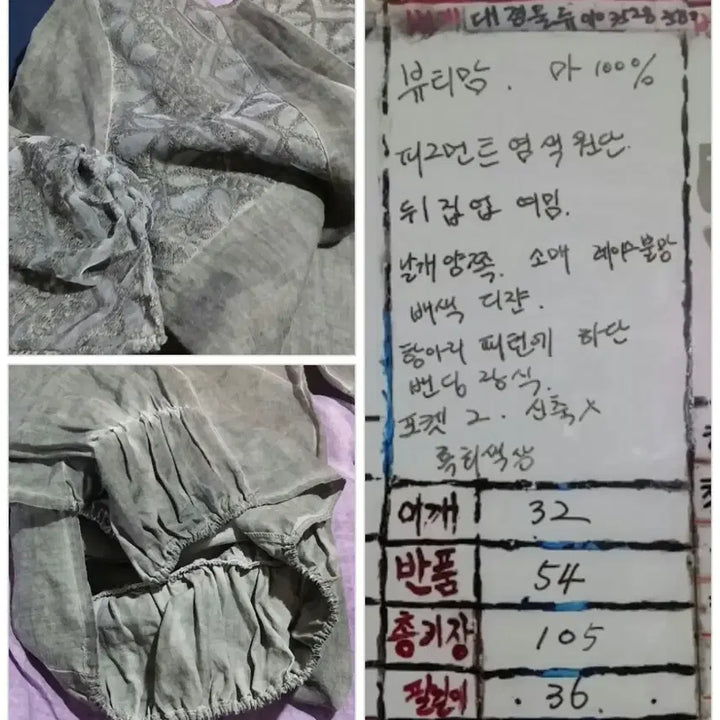 뷰티맘. 마 100%
피그먼트 염색 원단.
뒤 집업 여밈.
날개 양쪽. 소매 레이스블랑
배색 디쟌.
항아리 패턴에 하단
밴딩 장식.
포켓 2. 신축X
색상
어깨 32
반품 54
총기장 105
팔길이 36